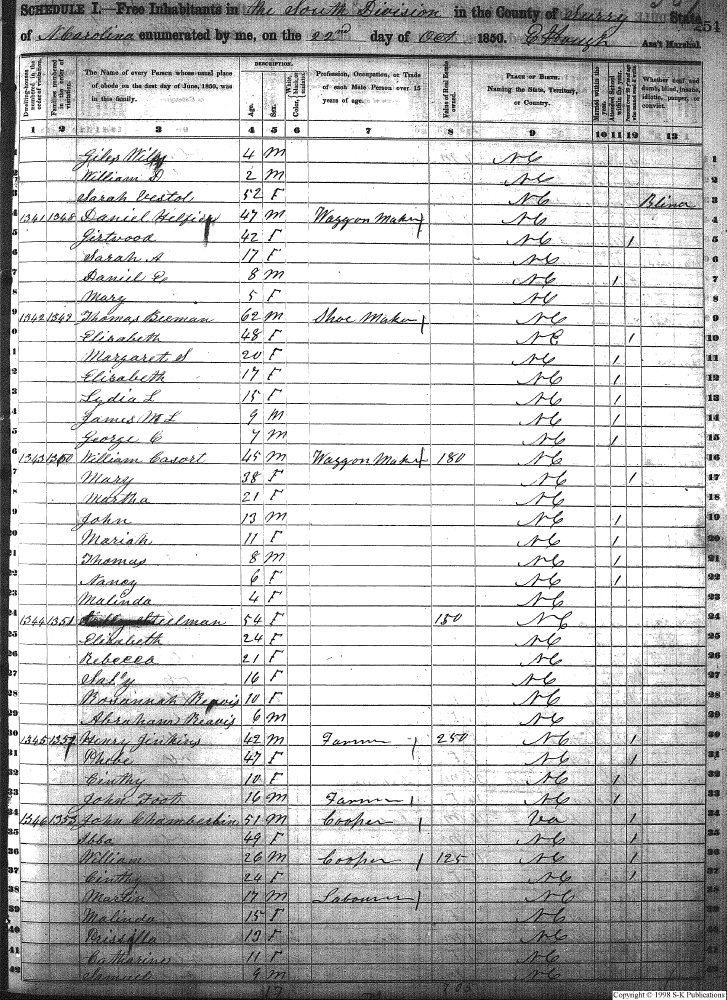 SCHEDULE I.—Free Inhabitants in the South Division in the County of Surry State
of N Carolina enumerated by me, on the 22nd day of Oct 1850. Ass't Marshal. 254
DESCRIPTION.
Dwelling-houses numbered in the order of visitation. Families numbered in the order of visitation. The Name of every Person whose usual place of abode on the first day of June, 1850, was in this family. Age. Sex. Color, White, black, or mulatto. Profession, Occupation, or Trade of each Male Person over 15 years of age. Value of Real Estate owned. PLACE OF BIRTH. Naming the State, Territory, or Country. Married within the year. Whether deaf and dumb, blind, insane, idiotic, pauper, or convict.
1 2 3 4 5 6 7 8 9 10 11 12 13
1 Giles 4 M NC 1
2 William D 2 M NC 2
3 Sarah Vestol 52 F NC Blind 3
4 1341 1348 Daniel 47 M Waggon Maker NC 4
5 Girtwood 42 F NC 1 5
6 Sarah A 17 F NC 6
7 Daniel 8 M NC 1 7
8 Mary 5 F NC 8
9 1342 1349 Thomas Beeman 62 M Shoe Maker NC 9
10 Elizabeth 48 F NC 1 10
11 Margaret S 20 F NC 1 11
12 Elizabeth 17 F NC 1 12
13 Lydia L 15 F NC 1 13
14 James M L 9 M NC 1 14
15 George C 7 M NC 1 15
16 1343 1350 William Casort 45 M Waggon Maker 180 NC 16
17 Mary 38 F NC 1 17
18 Martha 21 F NC 18
19 John 13 M NC 1 19
20 Mariah 11 F NC 1 20
21 Thomas 8 M NC 1 21
22 Nancy 6 F NC 1 22
23 Malinda 4 F NC 23
24 1344 1351 Steelman 54 F 150 NC 24
25 Elizabeth 24 F NC 25
26 Rebecca 21 F NC 26
27 Sally 16 F NC 27
28 Rosannah Reavis 10 F NC 28
29 Abraham Reavis 6 M NC 29
30 1345 1352 Henry Jinkins 42 M Farmer 250 NC 1 30
31 Phobe 47 F NC 1 31
32 Cinthy 10 F NC 1 32
33 John Foot 16 M Farmer NC 1 33
34 1346 1353 John Chamberlin 51 M Cooper Va 1 34
35 Abba 49 F NC 1 35
36 William 26 M Cooper 125 NC 1 36
37 Cinthy 24 F NC 1 37
38 Martin 17 M Labourer NC 38
39 Malinda 15 F NC 39
40 Prissilla 13 F NC 40
41 Catharine 11 F NC 41
42 Samuel 9 M NC 42
Copyright © 1998 S-K Publications